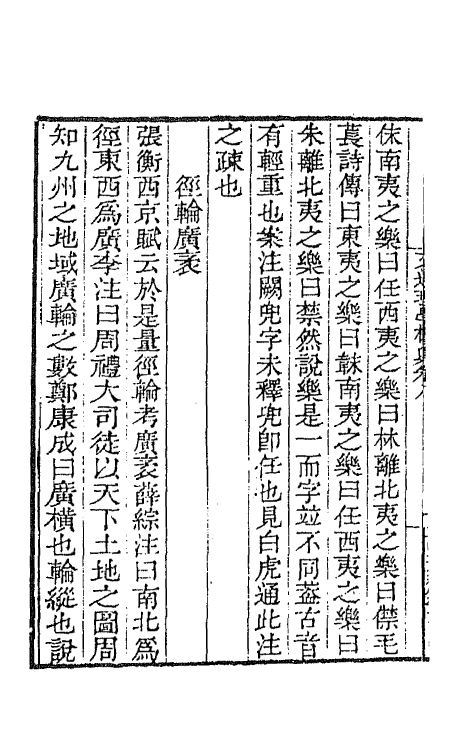 佅南夷之樂曰任西夷之樂曰林離北夷之樂曰僸毛
萇詩傳曰東夷之樂曰韎南夷之樂曰任西夷之樂曰
朱離北夷之樂曰禁然說樂是一而字並不同葢古音
有輕重也案注闕兜字未釋兜卽任也見白虎通此注
之疎也
徑輪廣袤
張衡西京賦云於是量徑輪考廣袤薛綜注曰南北爲
徑東西爲廣李注曰周禮大司徒以天下土地之圖周
知九州之地域廣輪之數鄭康成曰廣橫也輪縱也說